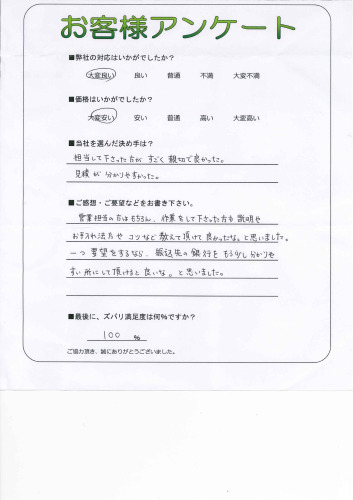 お客様アンケート
■弊社の対応はいかがでしたか？
大変良い 良い 普通 不満 大変不満
■価格はいかがでしたか？
大変安い 安い 普通 高い 大変高い
■当社を選んだ決め手は？
担当して下さった方が すごく 親切で良かった。
見積が 分かりやすかった。
■ご感想・ご要望などをお書き下さい。
営業担当の方はもちろん、作業をして下さった方も 説明や
お手入れ法方や コツなど 教えて頂けて 良かったな。と思いました。
一つ 要望をするなら、振込先の銀行を もう少し分かりや
すい所にして頂けると 良いな。と思いました。
■最後に、ズバリ満足度は何%ですか？
100 %
ご協力頂き、誠にありがとうございました。